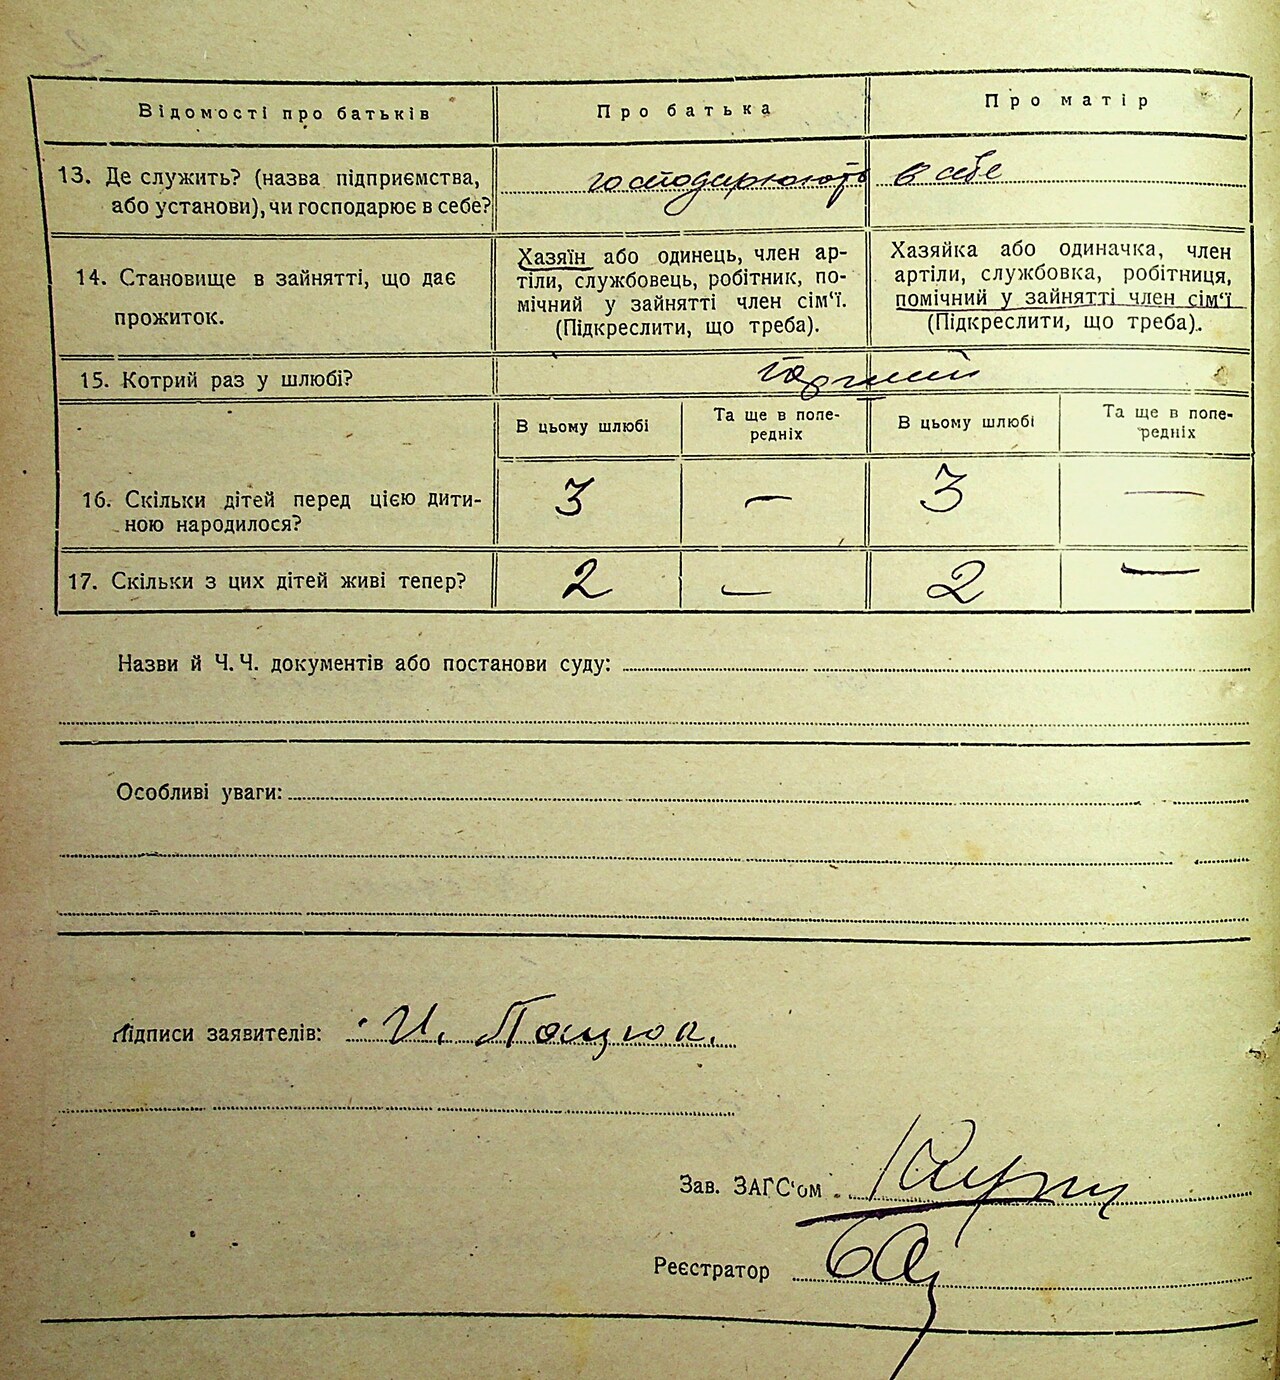 Відомості про батьків Про батька Про матір
13. Де служить? (назва підприємства, або установи), чи господарює в себе? господарюють в себе
14. Становище в зайнятті, що дає прожиток.
Хазяїн або одинець, член ар-
тіли, службовець, робітник, по-
мічний у зайнятті член сім'ї.
(Підкреслити, що треба).
Хазяйка або одиначка, член
артіли, службовка, робітниця,
помічний у зайнятті член сім'ї
(Підкреслити, що треба).
15. Котрий раз у шлюбі?
В цьому шлюбі
Та ще в попе-
редніх
В цьому шлюбі
Та ще в попе-
редніх
16. Скільки дітей перед цією дити-
ною народилося? 3 — 3 —
17. Скільки з цих дітей живі тепер? 2 — 2 —
Назви й Ч. Ч. документів або постанови суду:
Особливі уваги:
Підписи заявителів: И. Пацюк.
Зав. ЗАГС'ом
Реєстратор